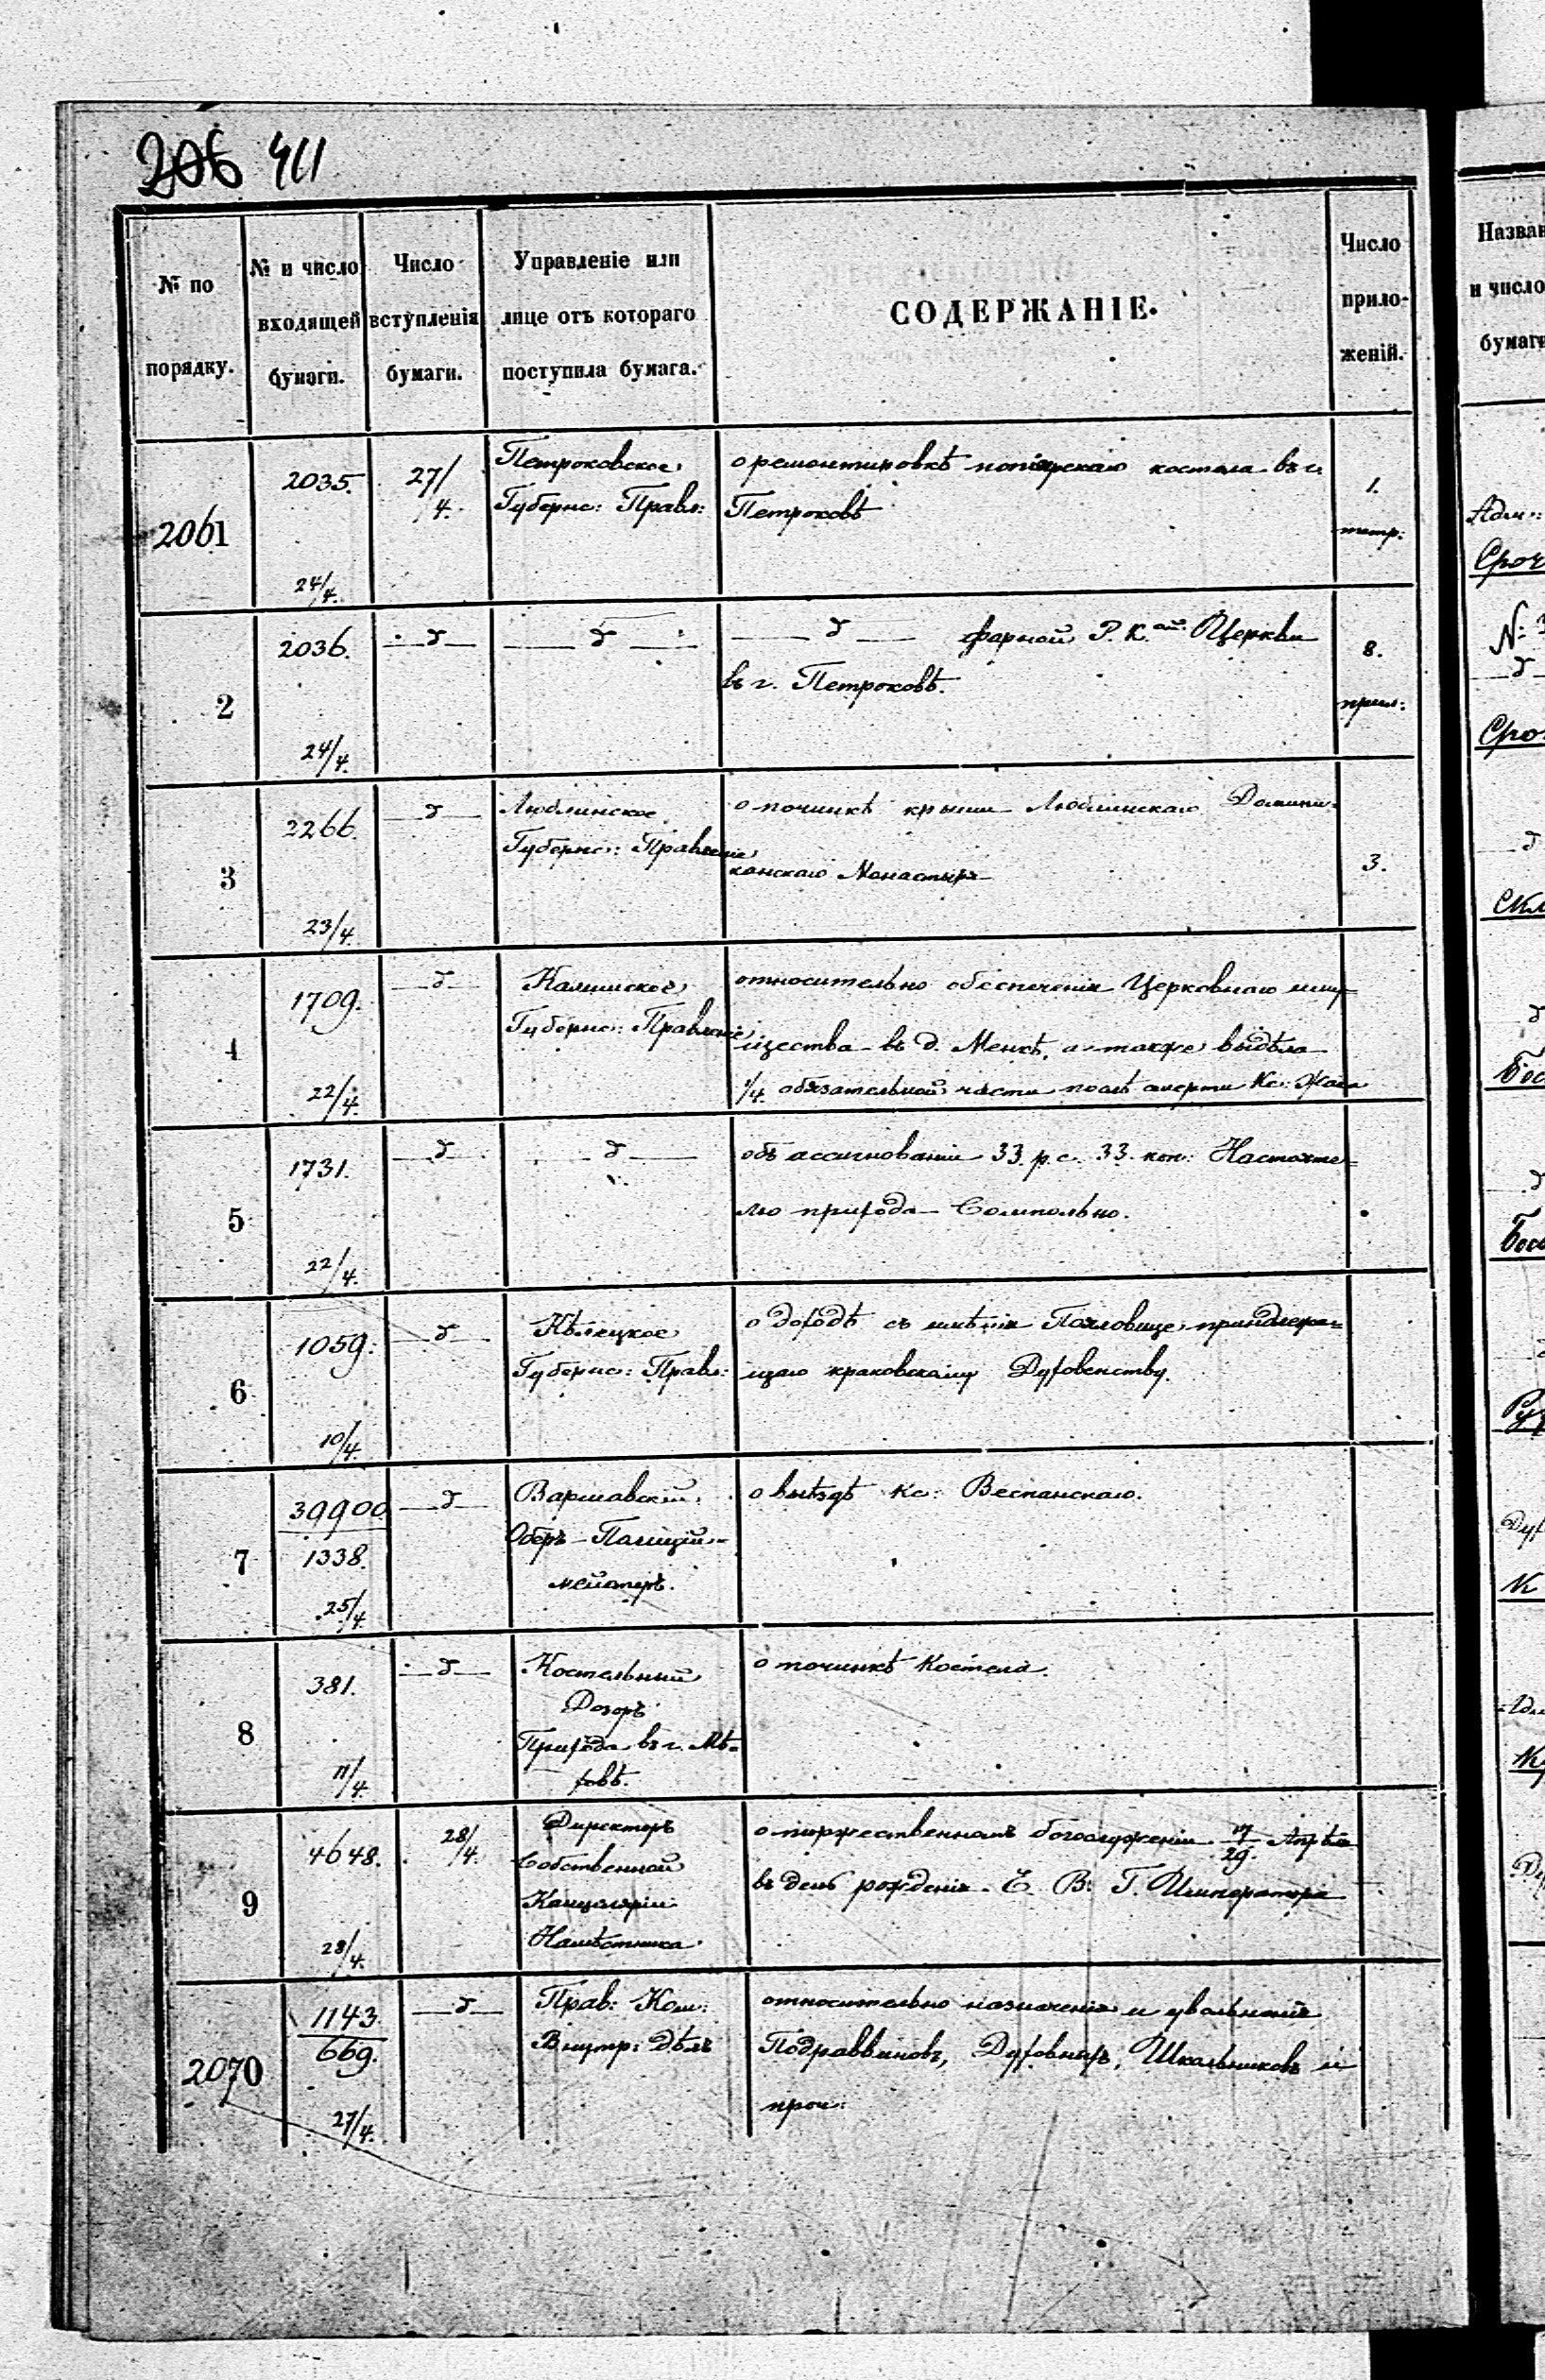 206 411
№ по порядку.
№ и число входящей бумаги.
Число вступленія бумаги.
Управленіе или лице отъ котораго поступила бумага.
СОДЕРЖАНІЕ.
Число приложеній.
Назван
и число
бумаги
2061
2035.
24/4.
27/4.
Петроковское
Губернс: Правл:
о ремонтировкѣ костела въ г.
Петроковѣ
1.
тетр:
2
2036.
24/4.
— д —
— д —
— д — фарной Р. К.ат. Церкви
въ г. Петроковѣ.
8.
прил:
3
2266.
23/4.
— д —
Люблинское
Губернс: Правленіе
о починкѣ крыши Люблинскаго Домини-
канскаго Монастыря
3.
4
1709.
22/4.
— д —
Калишское
Губернс: Правленіе
относительно обезпеченія Церковнаго иму=
щества въ д. Менкѣ, а также выдѣла
1/4 обязательной части послѣ смерти Кс:
5
1731.
22/4.
— д —
— д —
объ ассигнованіи 33 р. с. 33 коп: Настояте=
лю прихода Сомпольно.
6
1059.
10/4.
— д —
Кѣлецкое
Губернс: Правл:
о доходѣ съ имѣнія принадлежа=
щаго краковскому Духовенству.
7
39900
1338.
25/4.
— д —
Варшавскій
Оберъ-Полицій-
мейстеръ.
о выѣздѣ Кс: Веспанскаго.
8
381.
11/4.
— д —
Костельный
Дозоръ
Прихода въ г. Мѣ-
ховѣ.
о починкѣ Костела.
9
4648.
28/4.
28/4.
Директоръ
Собственной
Канцеляріи
Намѣстника
о торжественномъ богослуженіи 17/29 Апрѣля
въ день рожденія Е. В. Г. Императора
2070
1143.
669.
27/4.
— д —
Прав: Ком:
Внутр: Дѣлъ
относительно назначенія и увольненія
Подраввиновъ, Духовныхъ, Школьниковъ и
проч: